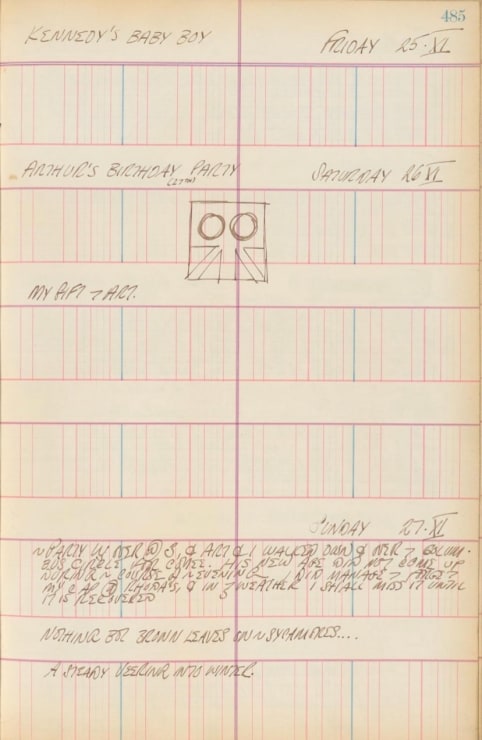 485
KENNEDY'S BABY BOY FRIDAY 25·XI
ARTHUR'S BIRTHDAY PARTY SATURDAY 26 XI
(27TH)
MY GIFT → ART.
SUNDAY 27·XI
PARTY W OVER @ 3, & ART & I WALKED DOWN & OVER → COLUM-
BUS CIRCLE FOR COFFEE. HIS NEW AGE DID NOT COME UP
DURING COURSE EVENING. I DID MANAGE → FORGET
MY CAP @ RHODA'S, & IN WEATHER I SHALL MISS IT UNTIL
IT IS RECOVERED
NOTHING BUT BROWN LEAVES ON SYCAMORES....
A STEADY VEERING INTO WINTER.